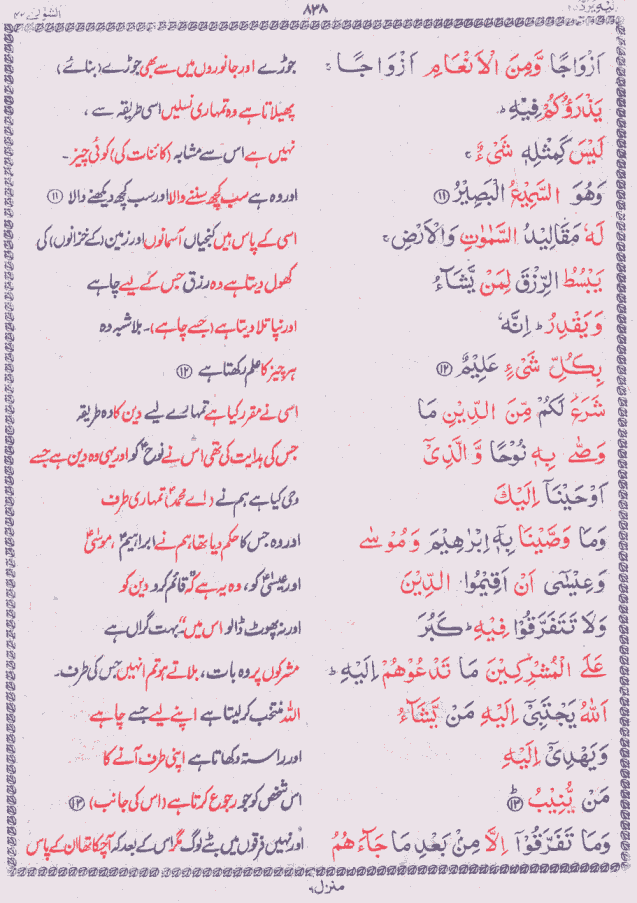 الشورٰی ۴۲ ۸۳۸ الیه یرد ۲۵
اَزْوَاجًا وَّمِنَ الْاَنْعَامِ اَزْوَاجًا ۚ جوڑے اور جانوروں میں سے بھی جوڑے (بنائے)
يَذْرَؤُكُمْ فِيْهِ ؕ پھیلاتا ہے وہ تمہاری نسلیں اسی طریقہ سے ،
لَيْسَ كَمِثْلِهٖ شَيْءٌ ۚ نہیں ہے اس سے مشابہ (کائنات کی) کوئی چیز ۔
وَهُوَ السَّمِيْعُ الْبَصِيْرُ ⑪ اور وہ ہے سب کچھ سننے والا اور سب کچھ دیکھنے والا ⑪
لَهٗ مَقَالِيْدُ السَّمٰوٰتِ وَالْاَرْضِ ۚ اسی کے پاس ہیں کنجیاں آسمانوں اور زمین (کے خزانوں) کی
يَبْسُطُ الرِّزْقَ لِمَنْ يَّشَآءُ کھول دیتا ہے وہ رزق جس کے لیے چاہے
وَيَقْدِرُ ؕ اِنَّهٗ اور نپا تلا دیتا ہے (جسے چاہے) ۔ بلاشبہ وہ
بِكُلِّ شَيْءٍ عَلِيْمٌ ⑫ ہر چیز کا علم رکھتا ہے ⑫
شَرَعَ لَكُمْ مِّنَ الدِّيْنِ مَا اسی نے مقرر کیا ہے تمہارے لیے دین کا وہ طریقہ
وَصّٰى بِهٖ نُوْحًا وَّالَّذِيْۤ جس کی ہدایت کی تھی اس نے نوحؑ کو اور یہی وہ دین ہے جسے
اَوْحَيْنَاۤ اِلَيْكَ وحی کیا ہے ہم نے (اے محمدؐ) تمہاری طرف
وَمَا وَصَّيْنَا بِهٖۤ اِبْرٰهِيْمَ وَمُوْسٰى اور وہ جس کا حکم دیا تھا ہم نے ابراہیمؑ ، موسٰیؑ
وَعِيْسٰۤى اَنْ اَقِيْمُوا الدِّيْنَ اور عیسٰیؑ کو ، وہ یہ ہے کہ "قائم کرو دین کو
وَلَا تَتَفَرَّقُوْا فِيْهِ ؕ كَبُرَ اور نہ پھوٹ ڈالو اس میں" بہت گراں ہے
عَلَى الْمُشْرِكِيْنَ مَا تَدْعُوْهُمْ اِلَيْهِ ؕ مشرکوں پر وہ بات ، بلاتے ہو تم انہیں جس کی طرف ۔
اَللّٰهُ يَجْتَبِيْۤ اِلَيْهِ مَنْ يَّشَآءُ اللہ منتخب کرلیتا ہے اپنے لیے جسے چاہے
وَيَهْدِيْۤ اِلَيْهِ اور راستہ دکھاتا ہے اپنی طرف آنے کا
مَنْ يُّنِيْبُ ؕ⑬ اس شخص کو جو رجوع کرتا ہے (اس کی جانب) ⑬
وَمَا تَفَرَّقُوْۤا اِلَّا مِنْۢ بَعْدِ مَا جَآءَهُمُ اور نہیں فرقوں میں بٹے لوگ مگر اس کے بعد کہ آچکا تھا ان کے پاس
منزل ۶